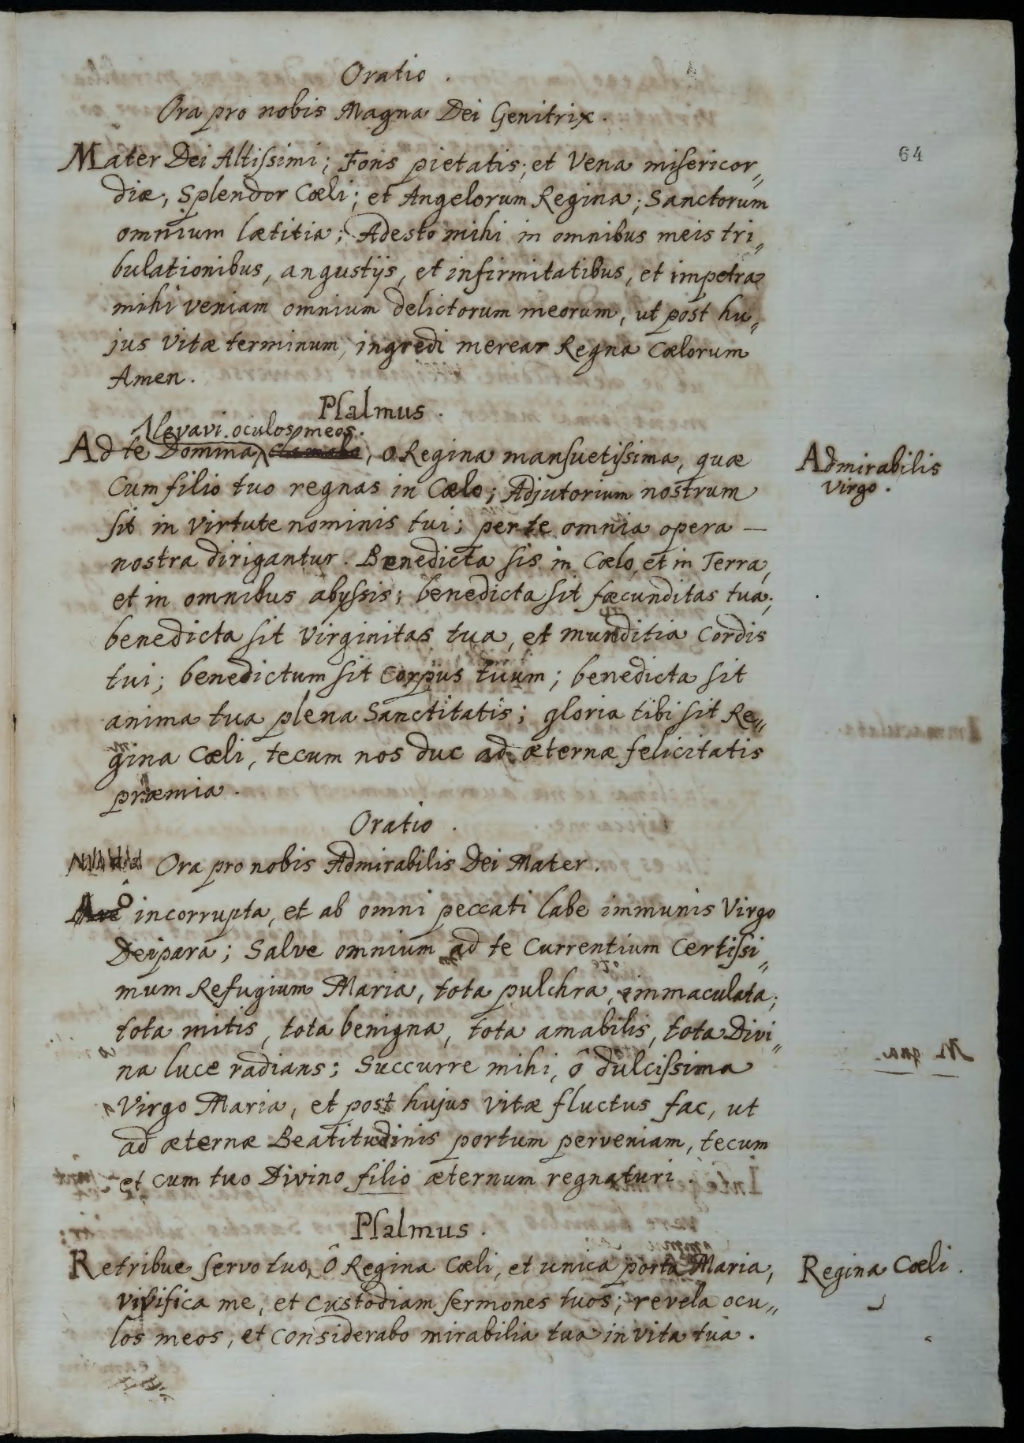 64
Oratio.
Ora pro nobis Magna Dei Genitrix.
Mater Dei Altiſsimi; Fons pietatis; et Vena miſericor„
diæ; Splendor Cœli; et Angelorum Regina; Sanctorum
omnium lætitia; Adesto mihi in omnibus meis tri„
bulationibus, angustijs, et infirmitatibus, et impetra
mihi veniam omnium delictorum meorum, ut post hu„
jus vitæ terminum, ingredi merear Regna Cœlorum
Amen.
Pſalmus.
levavi oculos meos.
Ad te Domina, ô Regina manſuetiſsima, quæ
Cum filio tuo regnas in Cœlo; Adjutorium nostrum
ſit in virtute nominis tui; per te omnia opera —
nostra dirigantur. Benedicta ſis in Cœlo, et in Terra,
et in omnibus abyſsis; benedicta ſit fæcunditas tua;
benedicta ſit Virginitas tua, et munditia Cordis
tui; benedictum ſit Corpus tuum; benedicta ſit
anima tua plena Sanctitatis; gloria tibi ſit Re„
gina Cœli, tecum nos duc ad æternæ felicitatis
præmia.
Admirabilis
Virgo.
Oratio.
Ora pro nobis Admirabilis Dei Mater.
Ô incorrupta, et ab omni peccati labe immunis Virgo
Deipara; Salve omnium ad te Currentium Certiſsi„
mum Refugium Maria, tota pulchra, immaculata;
tota mitis, tota benigna, tota amabilis, tota Divi„
na luce radians; Succurre mihi, ô dulciſsima
Virgo Maria, et post hujus vitæ fluctus fac, ut
ad æternæ Beatitudinis portum perveniam, tecum
et cum tuo Divino filio æternum regnaturi.
Pſalmus.
Retribue ſervo tuo, Ô Regina Cœli, et unica porta Maria,
vivifica me, et Custodiam ſermones tuos; revela ocu„
los meos, et Considerabo mirabilia tua in vita tua.
Regina Cœli.